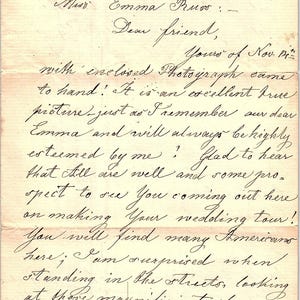 Miss Emma Russ :—
Dear friend,
Yours of Nov. 14th
with enclosed Photograph came
to hand! It is an excellent true
picture just as I remember our dear
Emma and will always be highly
esteemed by me! Glad to hear
that All are well and some pro-
spect to see You coming out here
on making Your wedding tour!
You will find many Americans
here; I am surprised when
standing in the streets, looking
at those